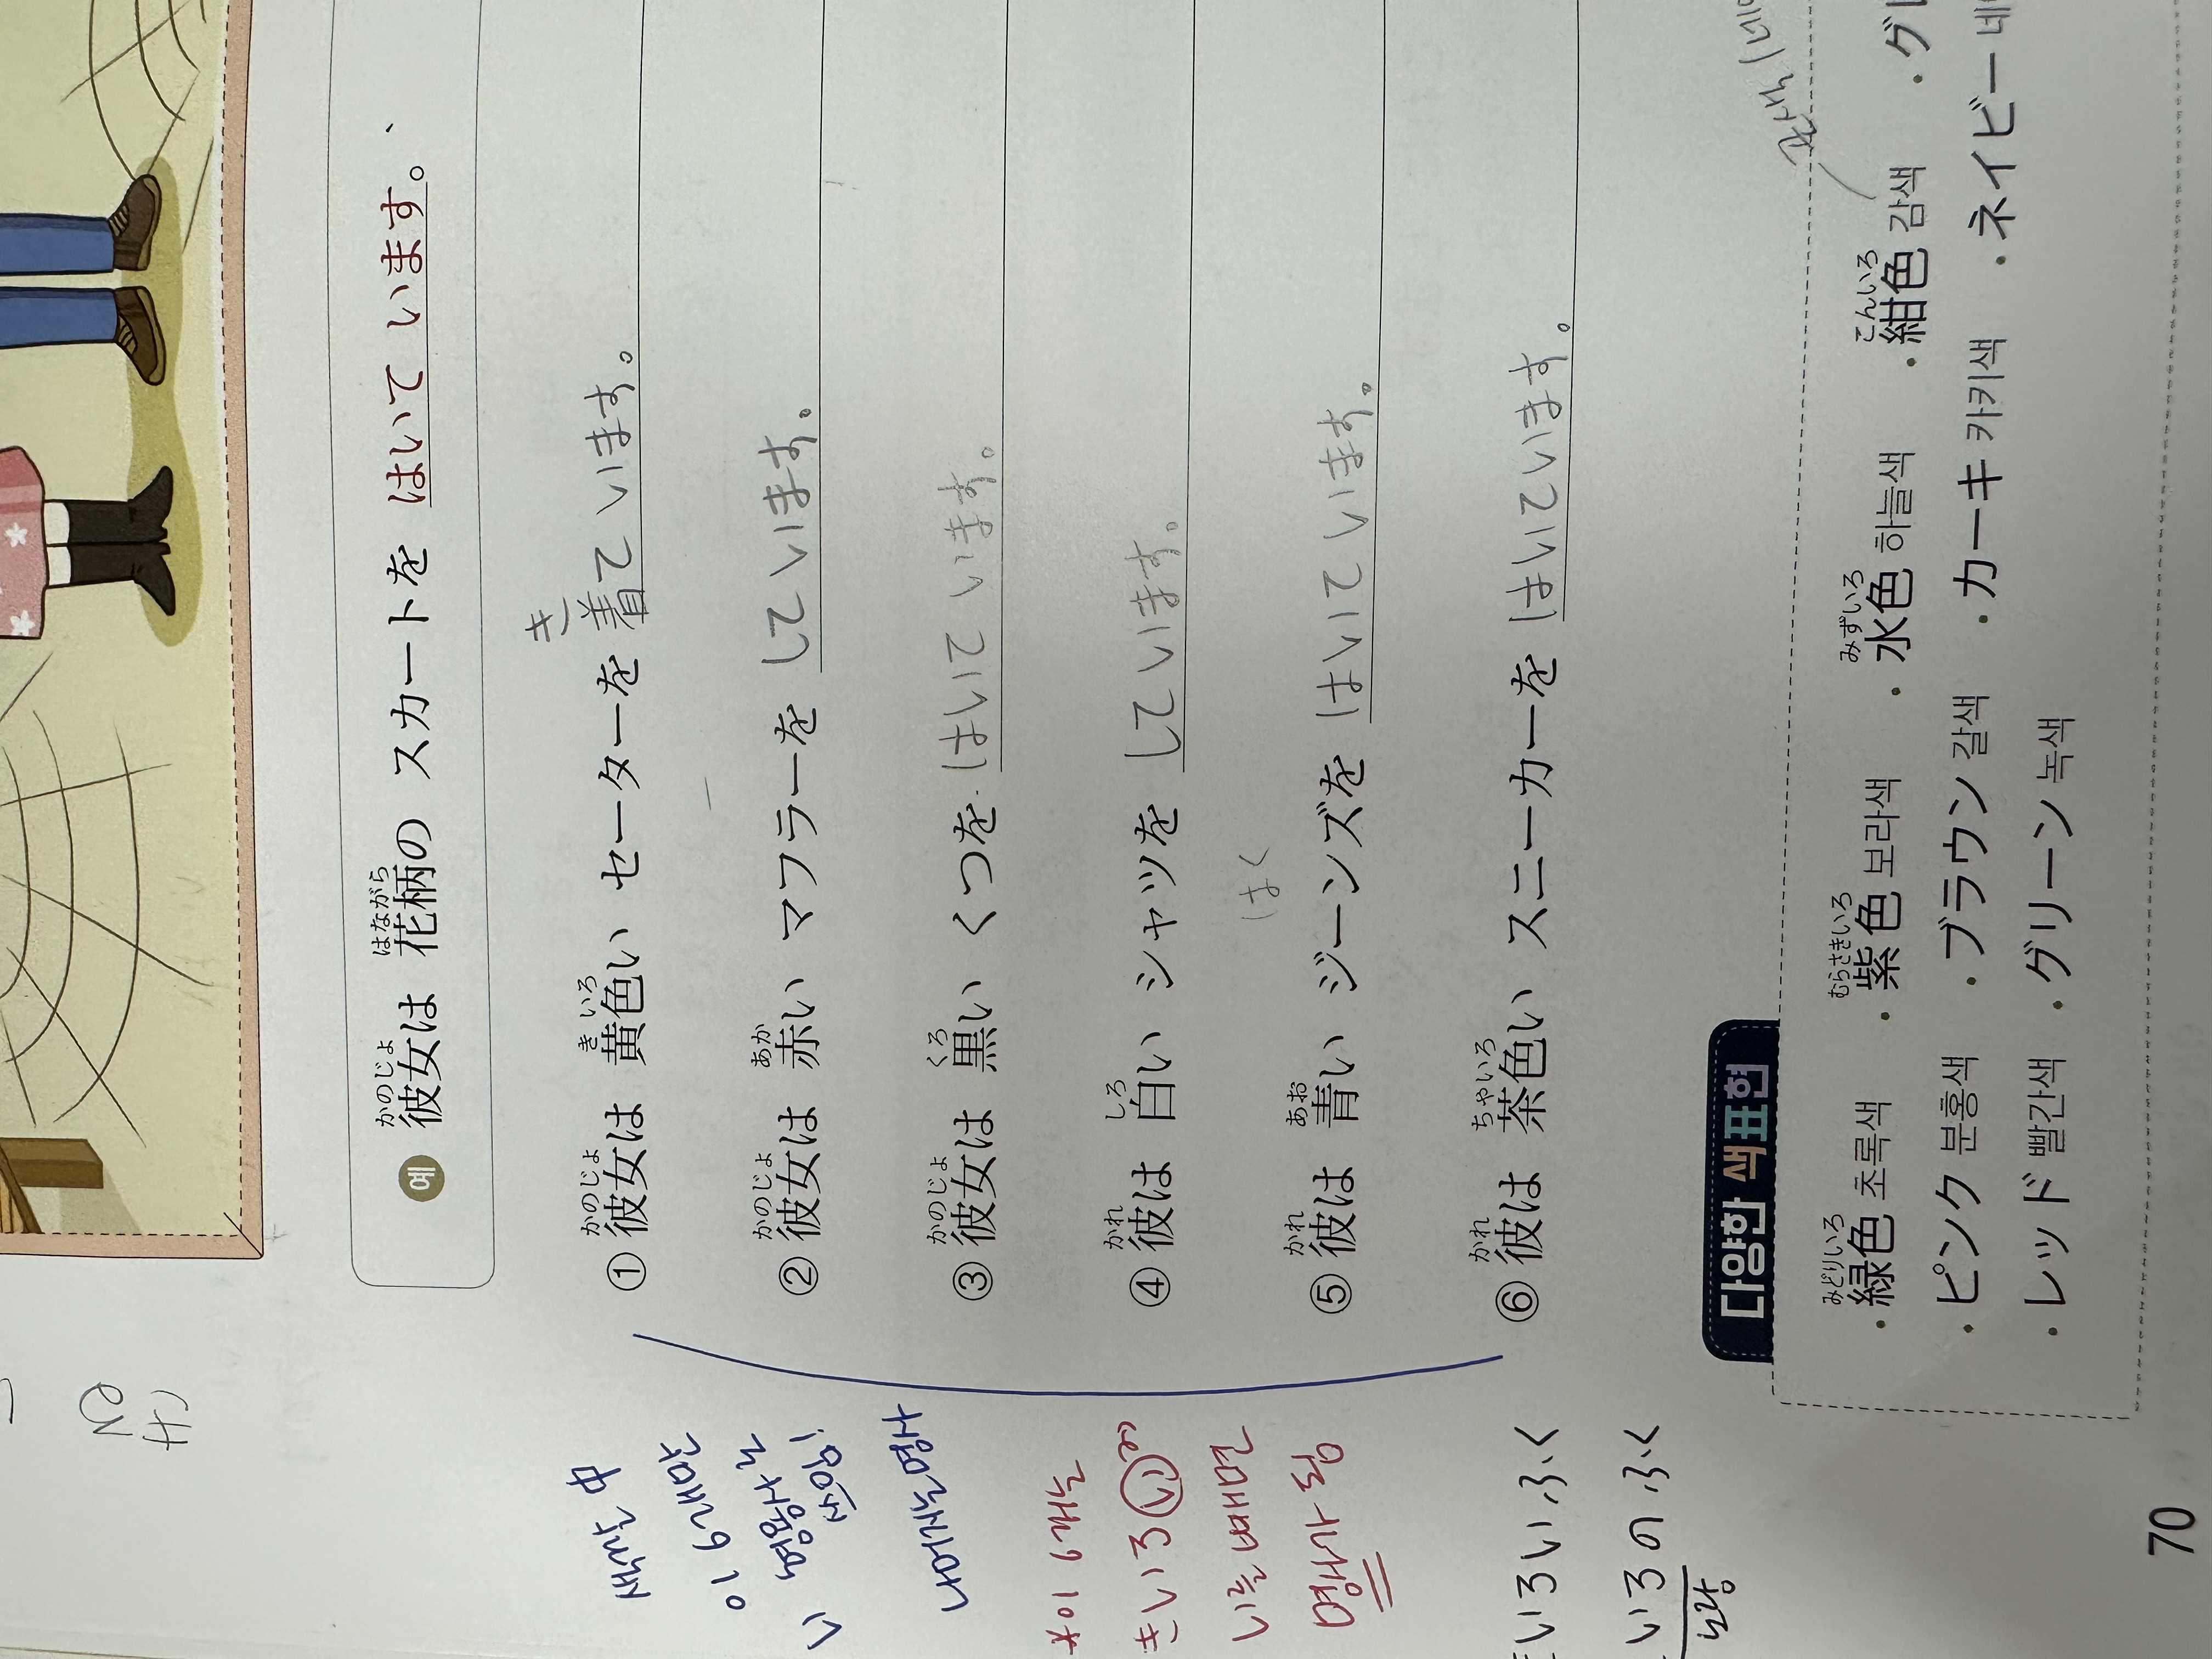 예 彼女は 花柄の スカートを はいて います。
かのじょ はながら
① 彼女は 黄色い セーターを 着て います。
かのじょ き いろ き
② 彼女は 赤い マフラーを して います。
かのじょ あか
③ 彼女は 黒い くつを はいて います。
かのじょ くろ
④ 彼は 白い シャツを して います。
かれ しろ
はく
⑤ 彼は 青い ジーンズを はいて います。
かれ あお
⑥ 彼は 茶色い スニーカーを はいて います。
かれ ちゃいろ
색깔 中
이 6개만
い형용사로
쓰임!
나머지는 명사
*이 6개는
きいろい의
い를 빼면
명사가 됨
いろい ふく
いろの ふく
노랑
다양한 색표현
・緑色 초록색 ・紫色 보라색 ・水色 하늘색 ・紺色 감색
みどりいろ むらさきいろ みずいろ こんいろ
・ピンク 분홍색 ・ブラウン 갈색 ・カーキ 카키색 ・ネイビー
・レッド 빨간색 ・グリーン 녹색
70